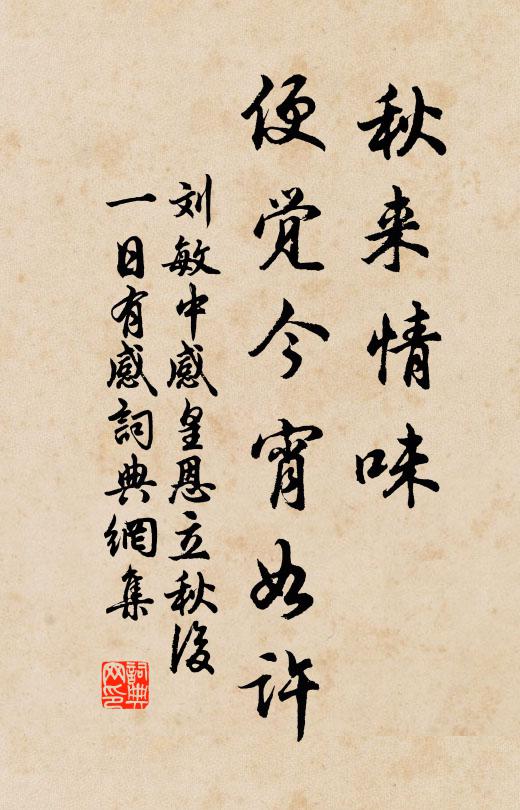 秋来情味
便觉今宵如许
刘敏中感皇恩立秋後
一日有感詞典網集
詞典网印